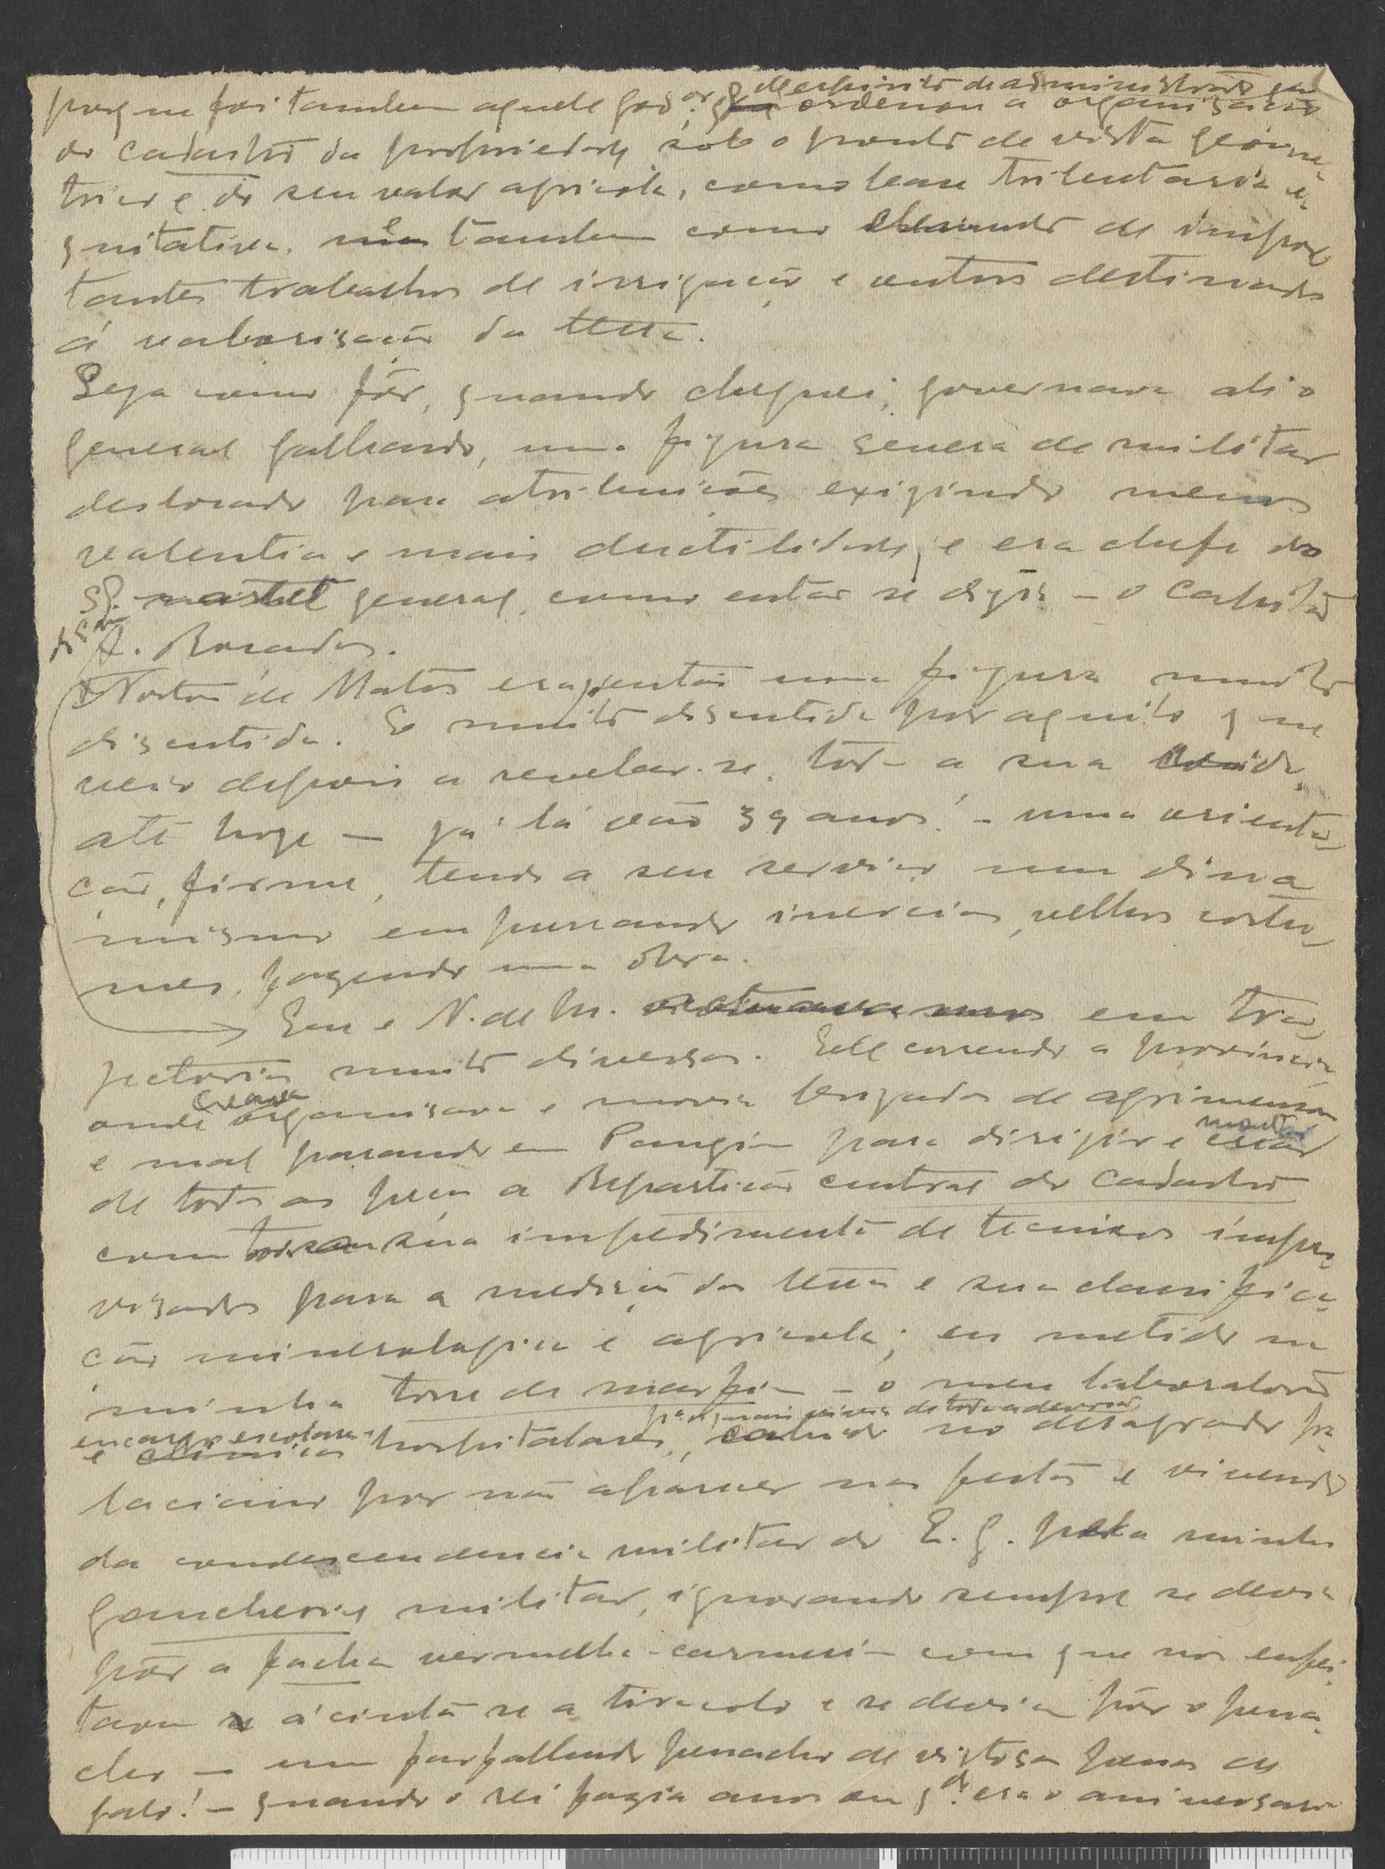 porque foi tambem aquele gov.or q de espirito de administrador
ordenou a organisação
do cadastro da propriedade sob o ponto de vista geome-
trico e do seu valor agricola, como base tributaria e-
quitativa, tambem como de impor-
tantes trabalhos de irrigação e outros destinados
á valorisação da terra.
Seja como fôr, quando cheguei, governava ali o
general Galhardo, uma figura severa de militar
deslocado para atribuições exigindo menos
valentia e mais ductilidade, e era chefe do
general, como então se dizia – o capitão
A. Roçadas.
Norton de Matos era, então uma figura muito
discutida. E muito discutida por aquilo que
veio depois a revelar-se toda a sua vida,
até hoje – já lá vão 39 anos! – uma orienta-
ção, firme, tendo a seu serviço um dina-
mismo empurrando inercias, velhos costu-
mes, fazendo uma obra.
Eu e N. de M. em tra-
jectorias muito diversas. Ele correndo a provincia
creava
onde organisava e movia brigadas de agrimensores
e mal parando em Pangim para dirigir e montar
de todas as peças a Repartição central do Cadastro
com sua impedimenta de tecnicos impro-
visados para a medição da terra e sua classifica-
ção mineralogica e agricola; eu metido na
minha torre de marfim – o meu laboratorio
encargos escolares
e clinicas hospitalares, no desagrado pa-
laciano por não aparecer nas festas e vivendo
da condescendencia militar do E. G. pela minha
gaucherie militar, ignorando sempre se devia
pôr a facha vermelha-carmesim com que nos enfei-
tavam á cinta se a tiracolo e se devia pôr o pena-
cho – um farfalhudo penacho de vistosas penas de
galo! – quando o rei fazia anos ou q.do era o aniversario